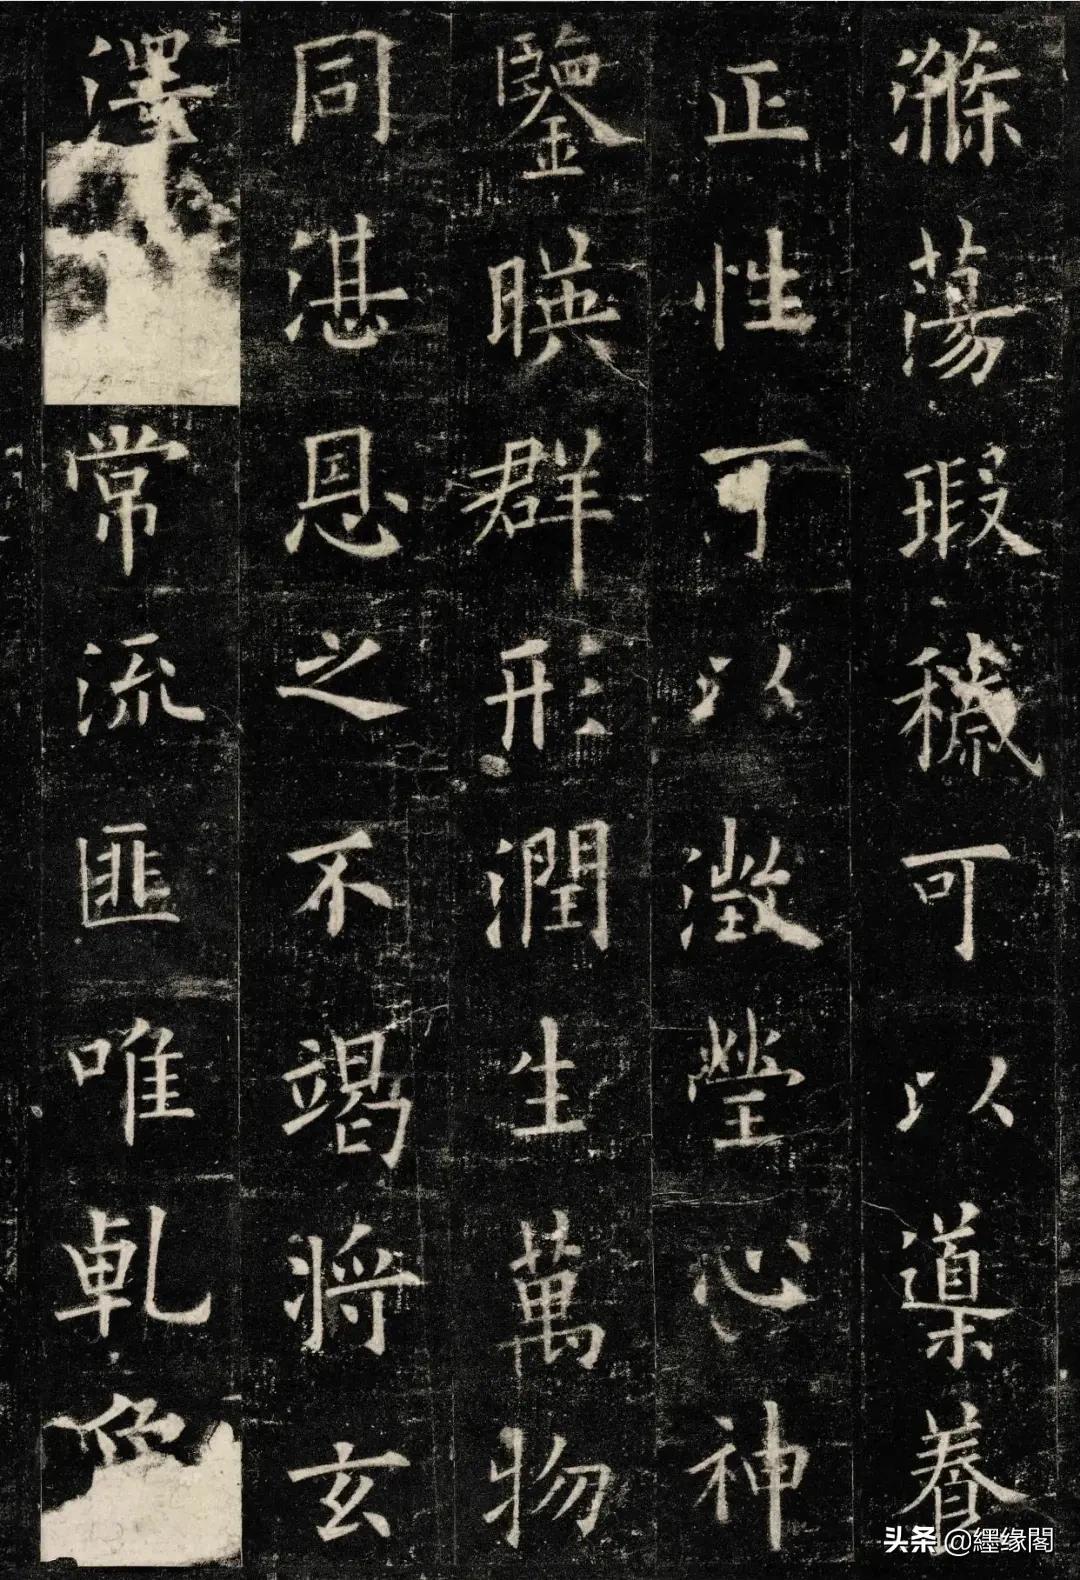 滌蕩瑕穢可以導養
正性可以澂瑩心神
鑒暎群形潤生萬物
同湛恩之不竭將玄
澤常流匪唯乹
头条 @纆缘閣